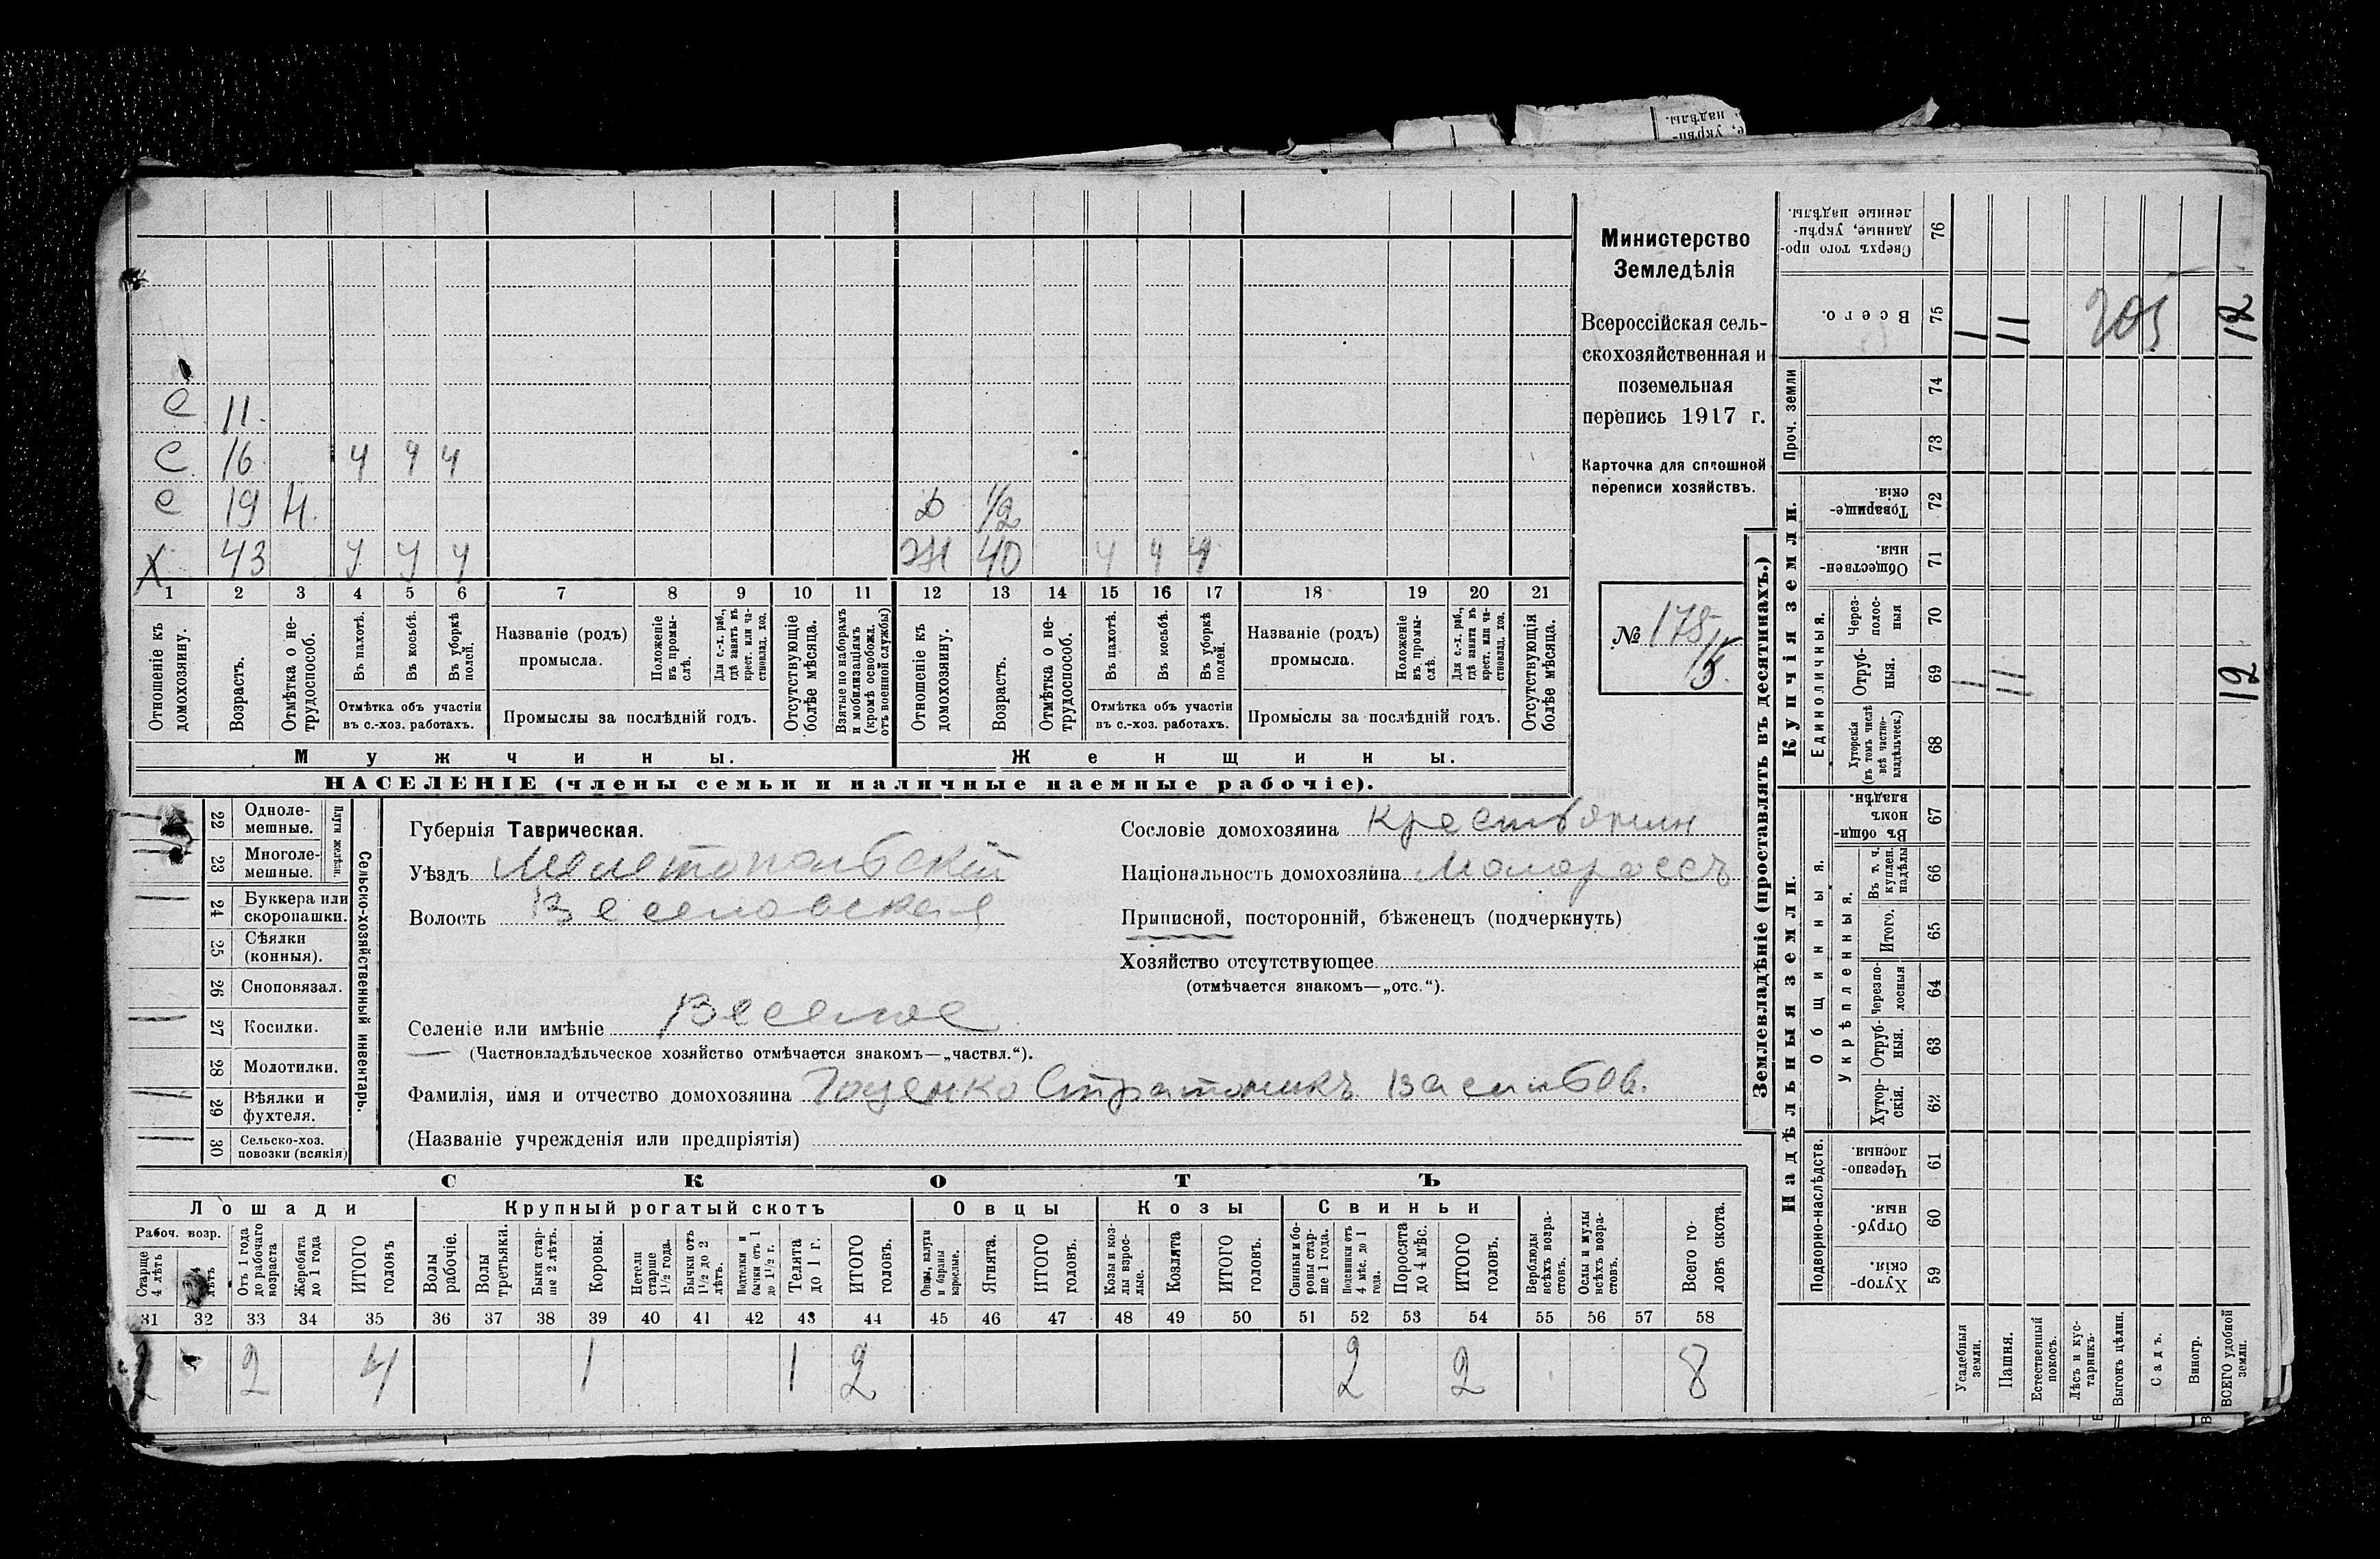 надѣлы.
е, укрѣп-
С 11.
С 16 ч ч ч
С 19 Н. Д 1/2
Х 43 ч ч ч Ж 40 ч ч ч
1 2 3 4 5 6 7 8 9 10 11 12 13 14 15 16 17 18 19 20 21
Отношеніе къ домохозяину.
Возрастъ.
Отмѣтка о не-трудоспособ.
Въ пахотѣ.
Въ косьбѣ.
Въ уборкѣ полей.
Отмѣтка объ участіи
въ с.-хоз. работахъ.
Названіе (родъ)
промысла.
Положеніе въ промы-слѣ.
Для с.-х. раб., гдѣ занятъ въ крест. или ча-стновлад. хоз.
Промыслы за послѣдній годъ.
Отсутствующіе болѣе мѣсяца.
Взятые по наборамъ и мобилизаціямъ (кромѣ освобожд. отъ военной службы)
Отношеніе къ домохозяину.
Возрастъ.
Отмѣтка о не-трудоспособ.
Въ пахотѣ.
Въ косьбѣ.
Въ уборкѣ полей.
Отмѣтка объ участіи
въ с.-хоз. работахъ.
Названіе (родъ)
промысла.
Положеніе въ промы-слѣ.
Для с.-х. раб., гдѣ занята въ крест. или ча-стновлад. хоз.
Промыслы за послѣдній годъ.
Отсутствующія болѣе мѣсяца.
Мужчины. Женщины.
НАСЕЛЕНІЕ (члены семьи и наличные наемные рабочіе).
Министерство
Земледѣлія
Всероссійская сель-
скохозяйственная и
поземельная
перепись 1917 г.
Карточка для сплошной
переписи хозяйствъ.
№ 178/
15.
22 Одноле-мешные.
23 Многоле-мешные.
Плуги желѣзн.
24 Буккера или скоропашки.
25 Сѣялки (конныя).
26 Сноповязал.
27 Косилки.
28 Молотилки.
29 Вѣялки и фухтеля.
30 Сельско-хоз. повозки (всякія)
Сельско-хозяйственный инвентарь.
Губернія Таврическая.
Уѣздъ Мелитопольскій
Волость Веселовская
Сословіе домохозяина крестьянин
Національность домохозяина Малороссъ
Приписной, посторонній, бѣженецъ (подчеркнуть)
Хозяйство отсутствующее
(отмѣчается знакомъ—„отс.“).
Селеніе или имѣніе Веселое
(Частновладѣльческое хозяйство отмѣчается знакомъ—„частвл.“).
Фамилія, имя и отчество домохозяина Гоценко Стратоникъ Васильев.
(Названіе учрежденія или предпріятія)
СКОТЪ
Лошади Крупный рогатый скотъ Овцы Козы Свиньи
Рабоч. возр.
Старше 4 лѣтъ
лѣтъ
Отъ 1 года до рабочаго возраста
Жеребята до 1 года
ИТОГО головъ
Волы рабочіе.
Волы третьяки.
Быки стар-ше 2 лѣтъ.
Коровы.
Нетели старше 1½ года.
Бычки отъ 1½ до 2 лѣтъ.
Подтелки и бычки отъ 1 до 1½ г.
Телята до 1 г.
ИТОГО головъ.
Овцы, валухи и бараны взрослые.
Ягнята.
ИТОГО головъ.
Козы и коз-лы взрос-лые.
Козлята
ИТОГО головъ.
Свиньи и бо-ровы стар-ше 1 года.
Подсвинки отъ 4 мѣс. до 1 года.
Поросята до 4 мѣс.
ИТОГО головъ.
Верблюды всѣхъ возра-стовъ.
Ослы и мулы всѣхъ возра-стовъ.
Всего го-ловъ скота.
31 32 33 34 35 36 37 38 39 40 41 42 43 44 45 46 47 48 49 50 51 52 53 54 55 56 57 58
2 2 4 1 1 2 2 2 8
Землевладѣніе (проставлять въ десятинахъ.)
Сверхъ того про-данные, укрѣп-ленные надѣлы. 76
Всего. 75 1 11 205 12
Проч. земли 74
73
Купчія земли.
Товарище-скія. 72
Обществен-ныя. 71
Единоличныя.
Через-полос-ныя 70
Отруб-ныя. 69 1 11 12
Хуторскія (въ томъ числѣ всѣ частно-владѣльческ.) 68
Надѣльныя земли.
Общинныя.
Въ общи-номъ владѣн. 67
Укрѣпленныя.
Въ т. ч. куплен. надѣлы 66
Итого. 65
Черезпо-лосныя 64
Отруб-ныя. 63
Хутор-скія. 62
Подворно-наслѣдств.
Черезпо-лосныя. 61
Отруб-ныя. 60
Хутор-скія. 59
Усадебныя земли.
Пашня.
Естественный покосъ.
Лѣсъ и кус-тарникъ.
Выгонъ цѣлин.
Садъ.
Виногр.
ВСЕГО удобной земли.